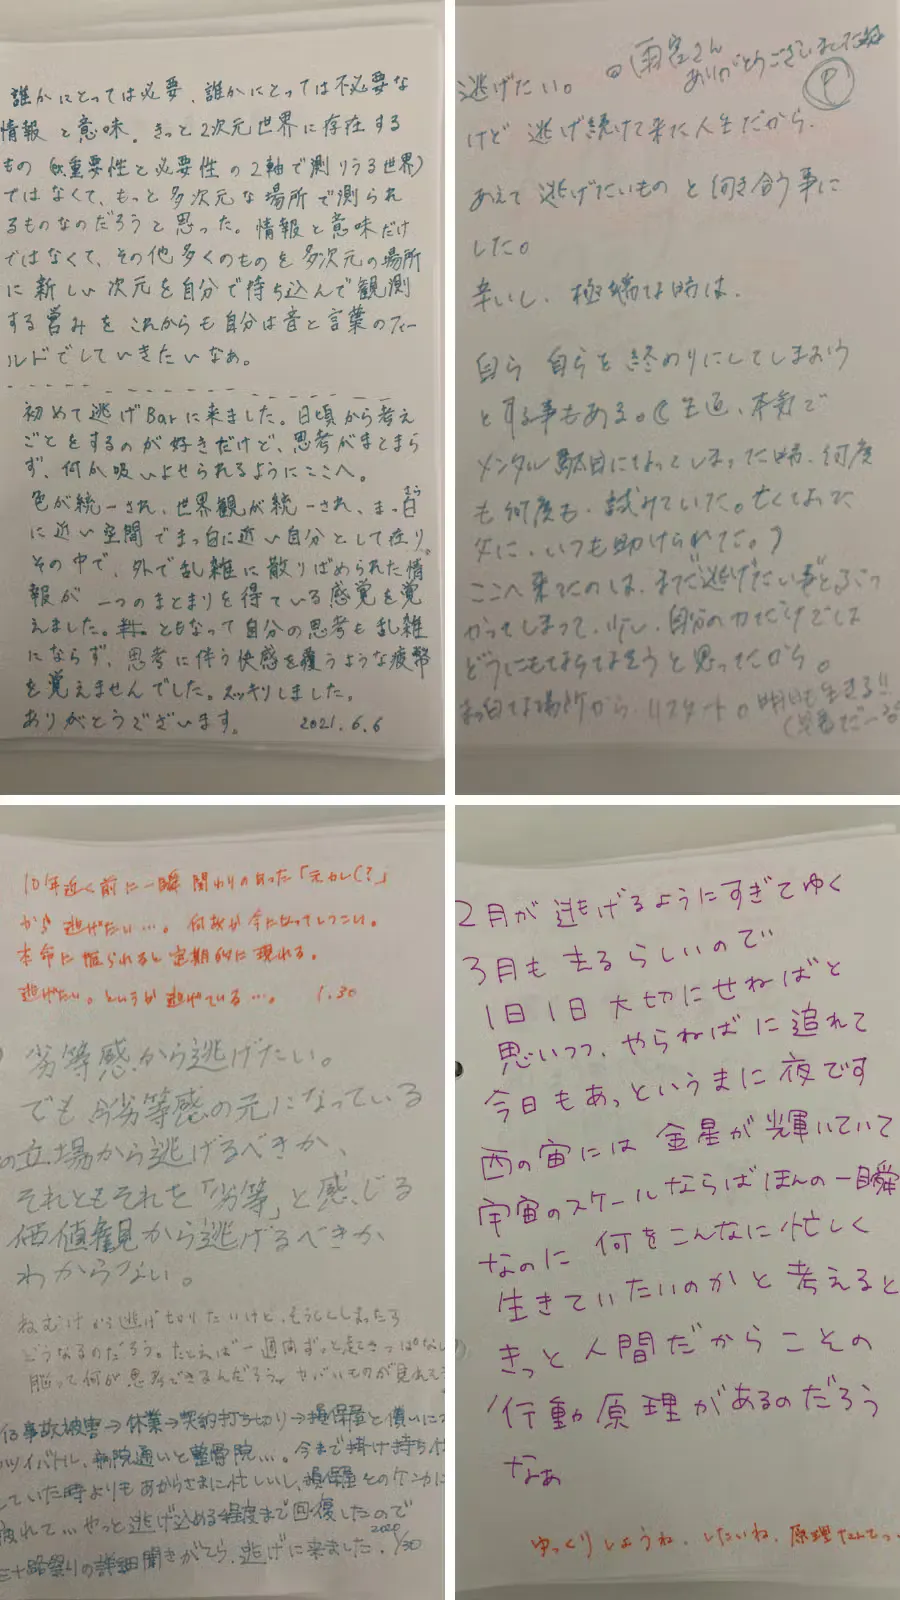 誰かにとっては必要、誰かにとっては不必要な
情報と意味。きっと2次元世界に存在する
もの(重要性と必要性の2軸で測りうる世界)
ではなくて、もっと多次元な場所で測られ
るものなのだろうと思った。情報と意味だけ
ではなくて、その他多くのものを多次元の場所
に新しい次元を自分で持ち込んで観測
する営みをこれからも自分は音と言葉のフィー
ルドでしていきたいなぁ。
初めて逃げBarに来ました。日頃から考え
ごとをするのが好きだけど、思考がまとまら
ず、何か吸いよせられるようにここへ。
色が統一され、世界観が統一され、まっ白
に近い空間でまっ白に近い自分として在り。
その中で、外で乱雑に散りばめられた情
報が一つのまとまりを得ている感覚を覚
えました。ともなって自分の思考も乱雑
にならず、思考に伴う快感を覆うような疲弊
を覚えませんでした。スッキリしました。
ありがとうございます。 2021.6.6
雨宮さん
ありがとうございました
逃げたい。
けど逃げ続けて来た人生だから、
あえて逃げたいものと向き合う事に
した。
辛いし、極端な時は、
自ら自らを終わりにしてしまおう
とする事もある。
メンタル駄目になってしまった時、何度
も何度も、試みていた。亡くなった
父に、いつも助けられてた。)
ここへ来たのは、また逃げたい事とぶつ
かってしまって、少し、自分の力だけでは
どうにもならなそうと思ってたから。
真っ白な場所から、リスタート。明日も生きる!!
10年近く前に一瞬関わりのあった「元カレ(?」
から逃げたい…。何故か今になってしつこい。
本命に振られると定期的に現れる。
逃げたい。というか逃げている…。 1.30
劣等感から逃げたい。
でも劣等感の元になっている
の立場から逃げるべきか、
それともそれを「劣等」と感じる
価値観から逃げるべきか
わからない。
ねむけから逃げ切りたいけど、もうとしまったら
どうなるのだろう。たとえば一週間ずっと起きっぱなし
脳って何が思考できるんだろう。ヤバいものが見れそう
事故被害→休業→契約打ち切り→損保屋と償いに
バトル、病院通いと整骨院…。今まで掛け持ち
していた時よりもあからさまに忙しいし、損保屋とのケンカに
疲れて…やっと逃げ込める程度まで回復したので
三十路祭りの詳細聞きがてら、逃げに来ました。 1/30
2月が逃げるようにすぎてゆく
3月も去るらしいので
1日1日大切にせねばと
思いつつ、やらねばに追れて
今日もあっというまに夜です
西の宙には金星が輝いていて
宇宙のスケールならばほんの一瞬
なのに何をこんなに忙しく
生きていたいのかと考えると
きっと人間だからこその
行動原理があるのだろう
なぁ
ゆっくりしようね、したいね、原理なんてっ